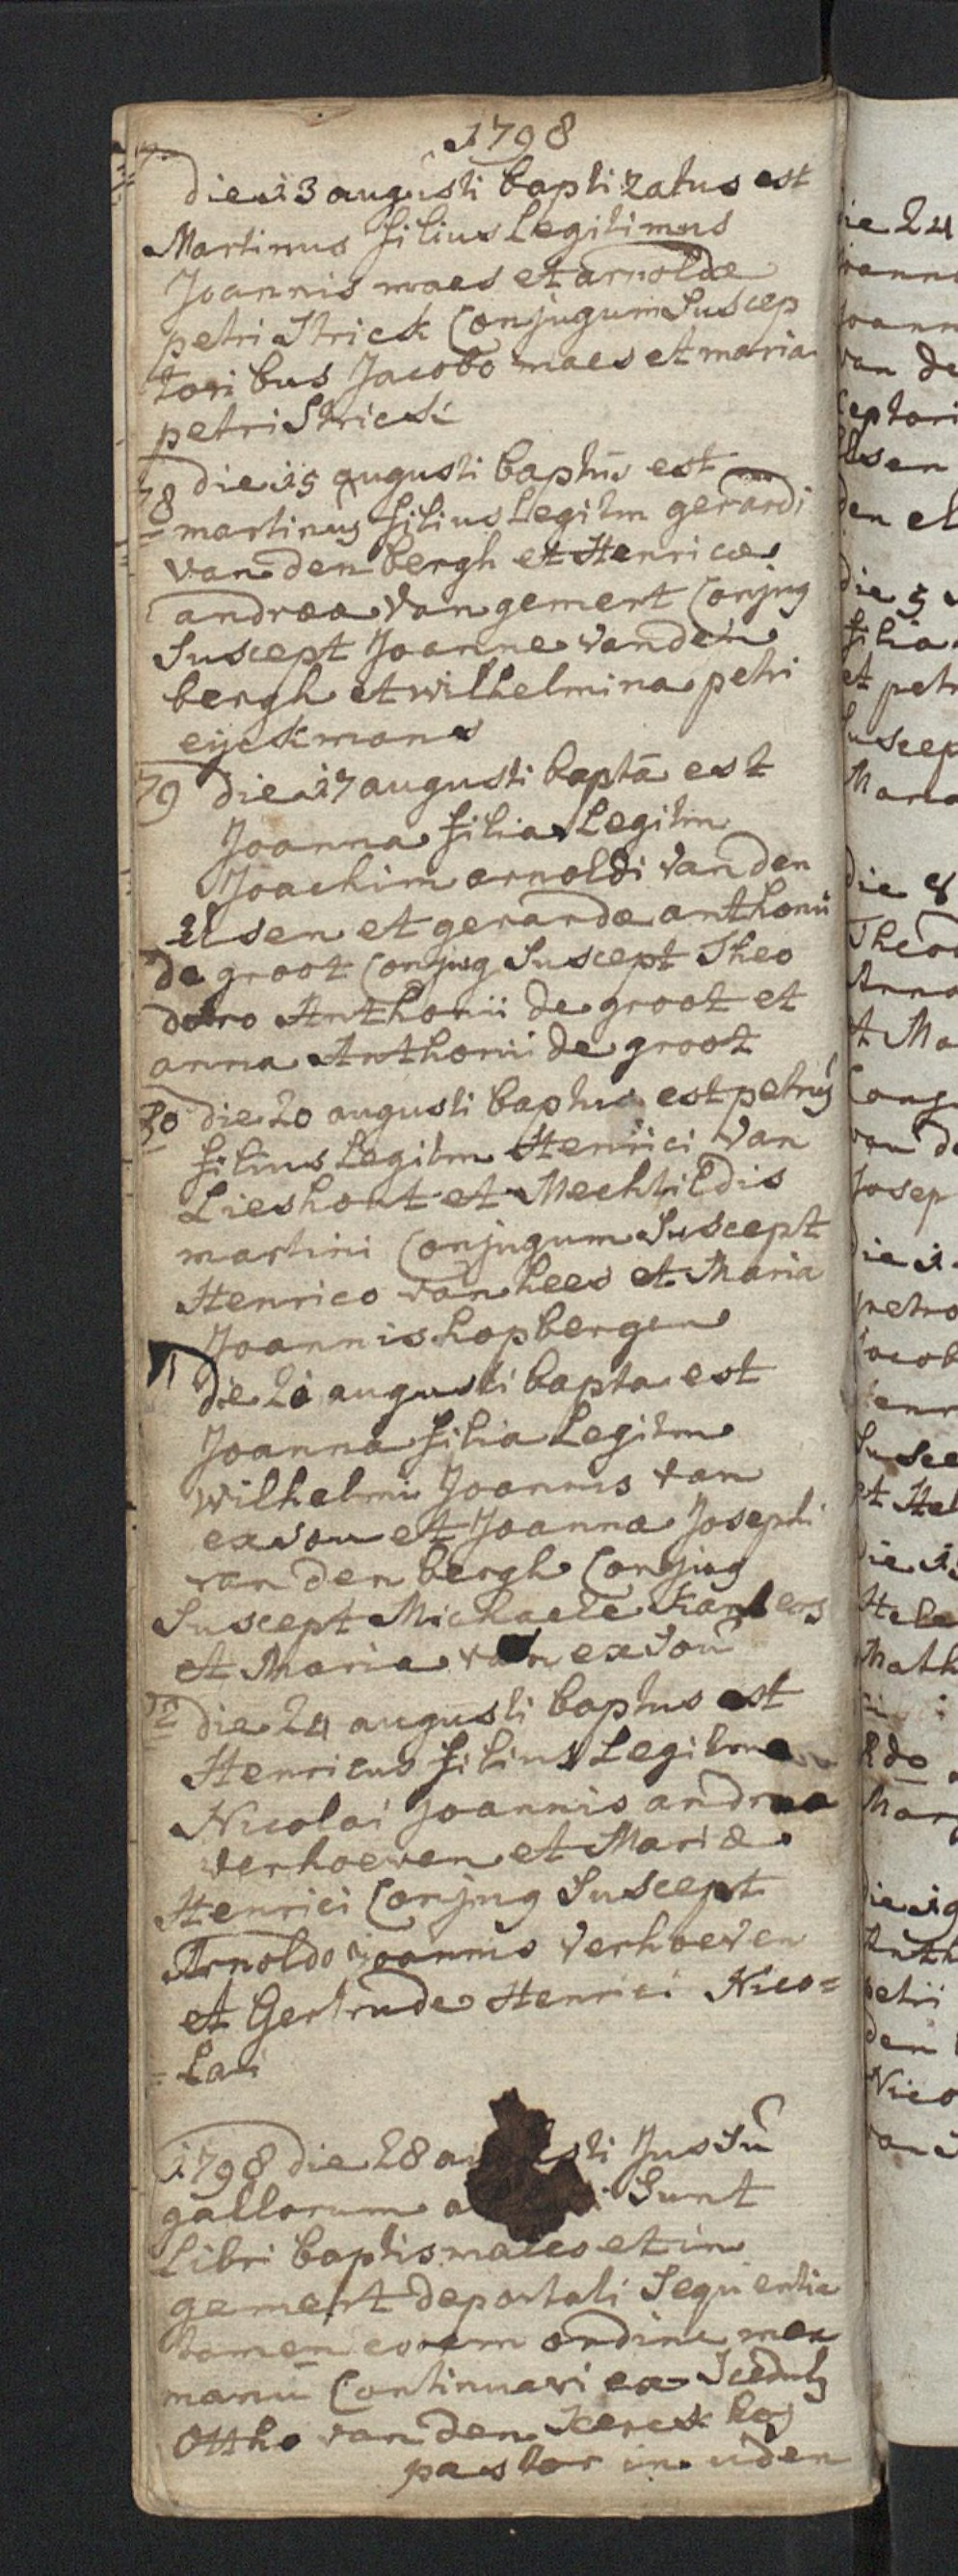 1798
die 13 augusti baptizatus est
Martinus filius Legitimus
Joannis maes et arnoldæ
petri Strick Conjugum Suscep
toribus Jacobo maes et maria
petri Strick
78 die 15 augusti baptus est
martinus filius Legitm gerardi
van den bergh et Henricæ
andreæ van gemert Conjug
Suscept Joanne vanden
bergh et wilhelmina petri
eijckmans
79 die 17 augusti bapta est
Joanna filia Legitm
Joachim arnoldi van den
Elsen et gerardæ anthonii
de groot Conjug Suscept Theo
doro Anthonii de groot et
anna Anthonii de groot
30 die 20 augusti baptus est petrus
filius Legitm Henrici van
Lieshout et Mechtildis
martini Conjugum Suscept
Henrico van hees et Maria
Joannis hopbergen
die 21 augusti bapta est
Joanna filia Legitm
wilhelmi Joannis van
exsou et Joanna Josephi
van den bergh Conjug
Suscept Michaele Kanters
et Maria van exsou
die 24 augusti baptus est
Henricus filius Legitm
Nicolai Joannis andreæ
verhoeven et Mariæ
Henrici Conjug Suscept
Arnoldo Joannis verhoeven
et Gertrude Henrici Nico=
=lai
1798 die 28 augusti Jussu
gallorum Sunt
Libri baptismales et in
gemert deportati Sequentia
tamen eorem ordine mea
manu Continuavi ex Scedulis
Ottho van den
pastor in uden
ie 24
van de
die 5
filia
et petr
Maria
die 8
Theod
Anna
et Ma
Conju
van de
Josep
petro
Jacob
Susce
et Hel
Hele
Math
Mar
Anth
petri
den
Nico